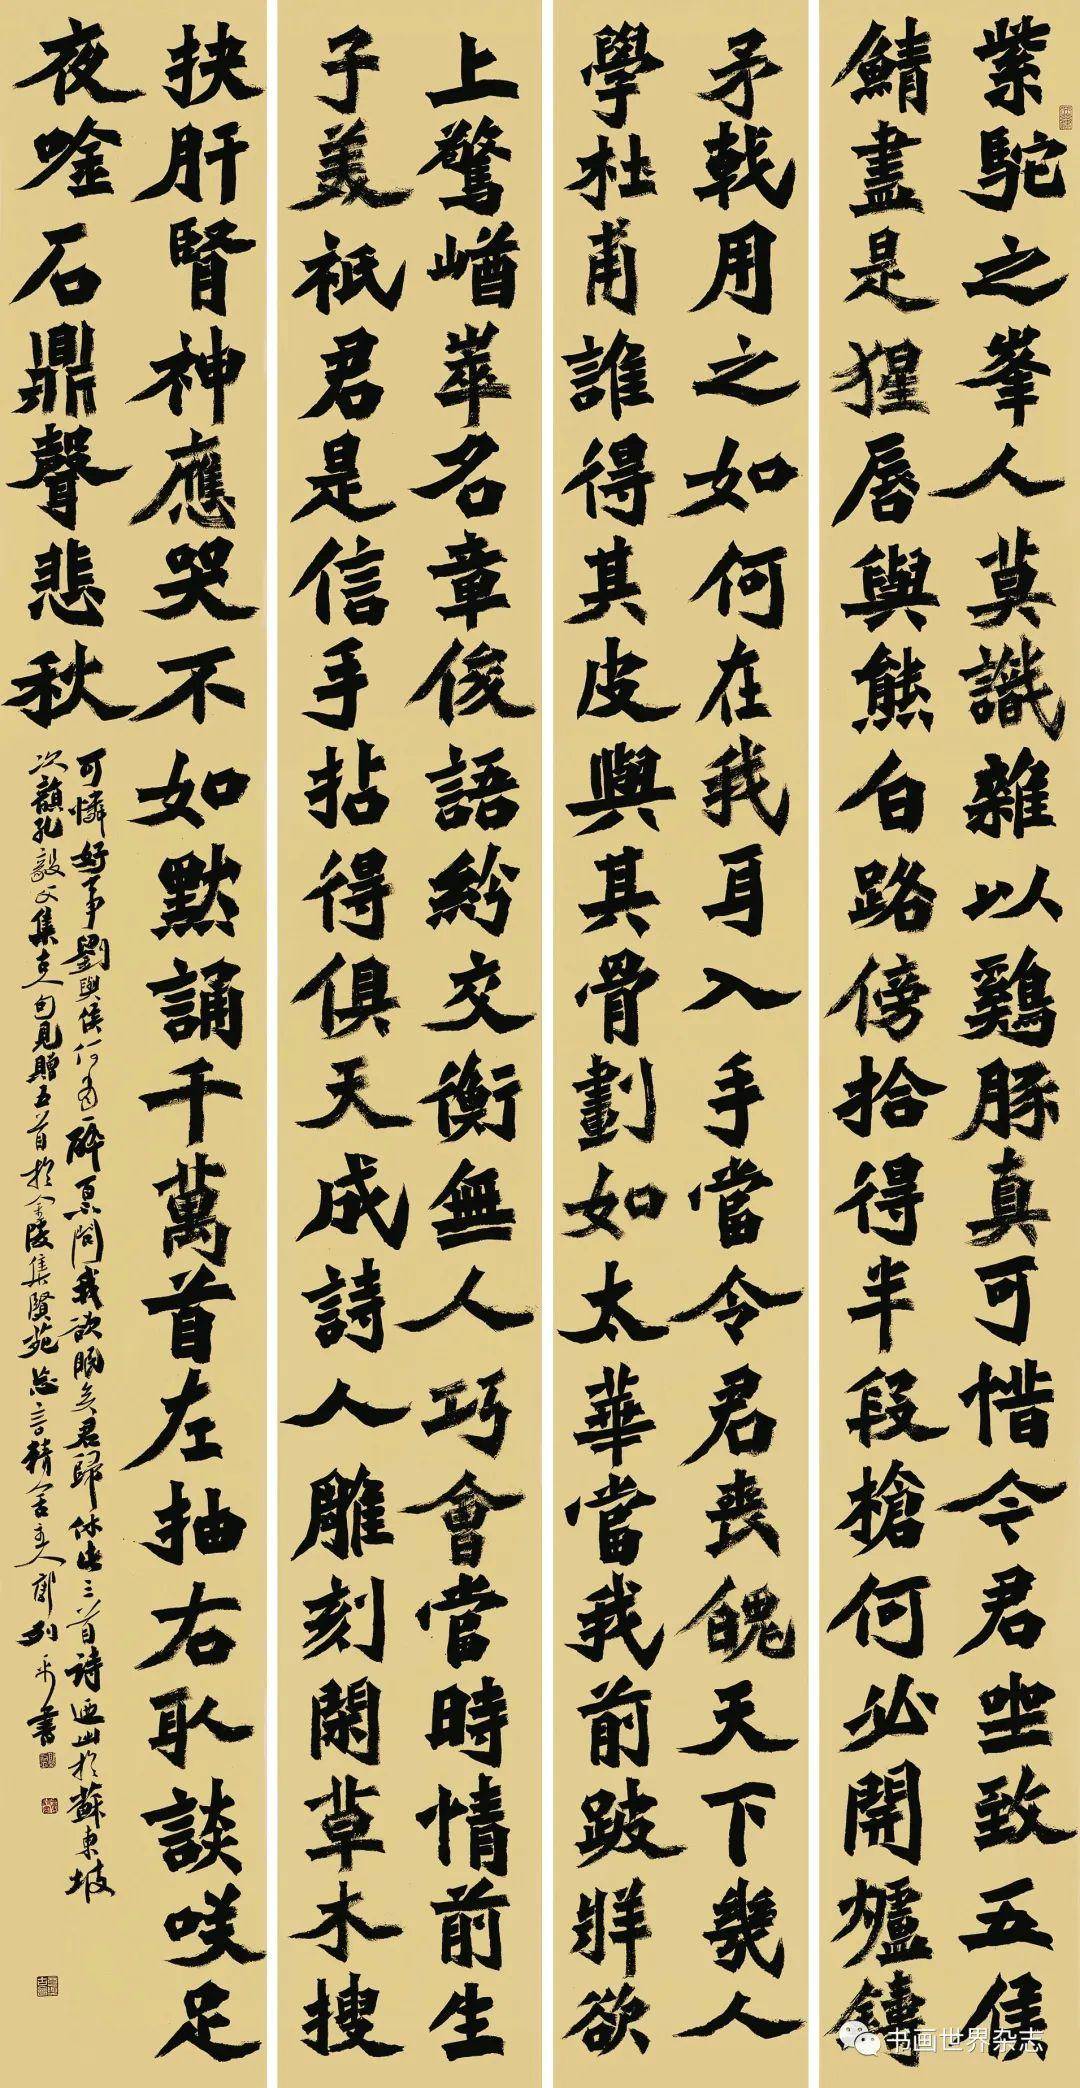 紫駝之峯人莫識雜以鷄豚真可惜今君坐致五侯
鯖盡是猩唇與熊白路傍拾得半段槍何必開爐鑄
矛戟用之如何在我耳入手當令君喪魄天下幾人
學杜甫誰得其皮與其骨劃如太華當我前跛牂欲
上驚崷崒名章俊語紛交衡無人巧會當時情前生
子美祇君是信手拈得俱天成詩人雕刻閑草木搜
抉肝腎神應哭不如默誦千萬首左抽右取談咲足
夜唫石鼎聲悲秋
可憐好事劉與侯何當一醉百不問我欲眠矣君歸休此三首詩迺出於蘇東坡
次韻孔毅父集古人句見贈五首於金陵集賢苑忘言精舍主人郭列平書
书画世界杂志